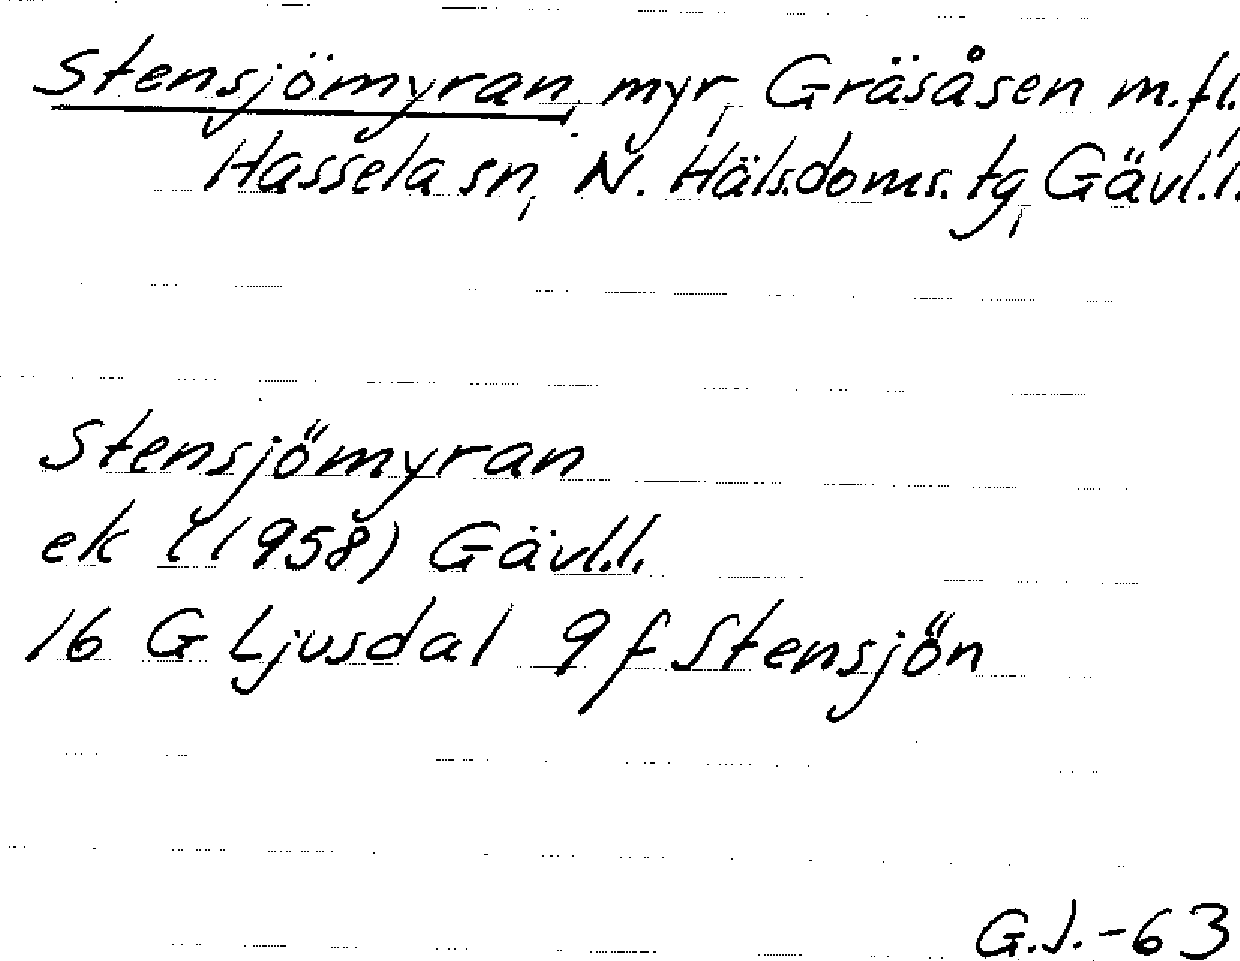 Stensjömyran, myr, Gräsåsen m.fl.,
Hassela sn, N. Häls.doms.tg, Gävl.l.
Stensjömyran
ek (1958) Gävl.l.
16 G Ljusdal 9 f Stensjön
G.J.-63